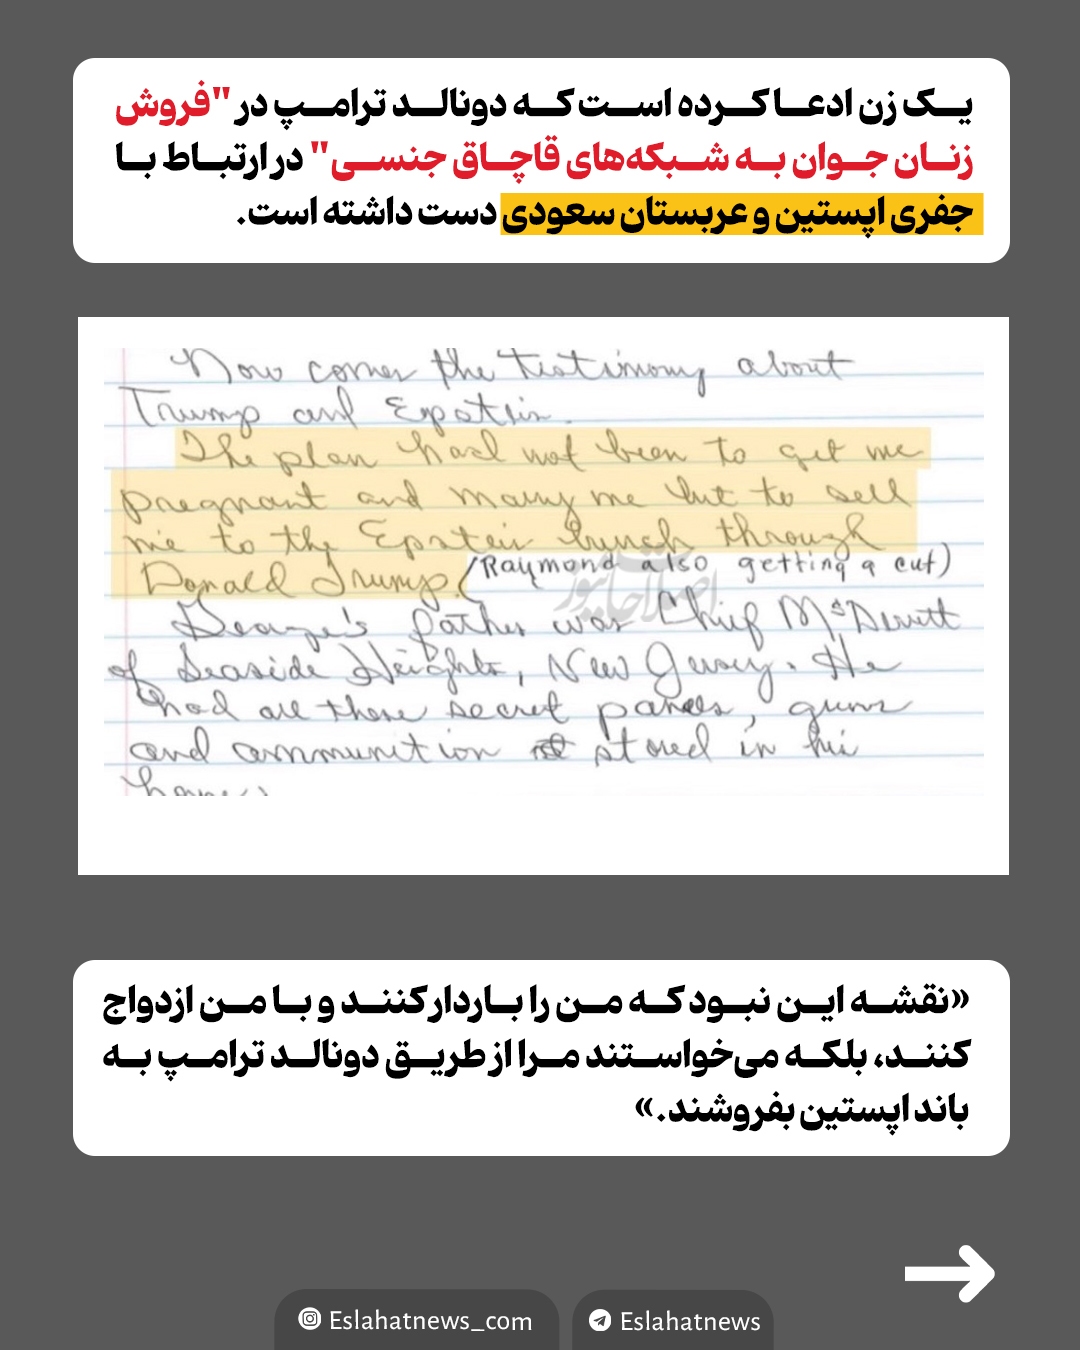 یک زن ادعا کرده است که دونالد ترامپ در "فروش
زنان جوان به شبکه‌های قاچاق جنسی" در ارتباط با
جفری اپستین و عربستان سعودی دست داشته است.
Now comes the testimony about
Trump and Epstein.
The plan had not been to get me
pregnant and marry me but to sell
me to the Epstein bunch through
Donald Trump. (Raymond also getting a cut)
اصلاحات نیوز
father was Chief McDevitt
of Seaside Heights, New Jersey. He
had all these secret panels, guns
and ammunition stored in his
«نقشه این نبود که من را باردار کنند و با من ازدواج
کنند، بلکه می‌خواستند مرا از طریق دونالد ترامپ به
باند اپستین بفروشند.»
Eslahatnews_com
Eslahatnews